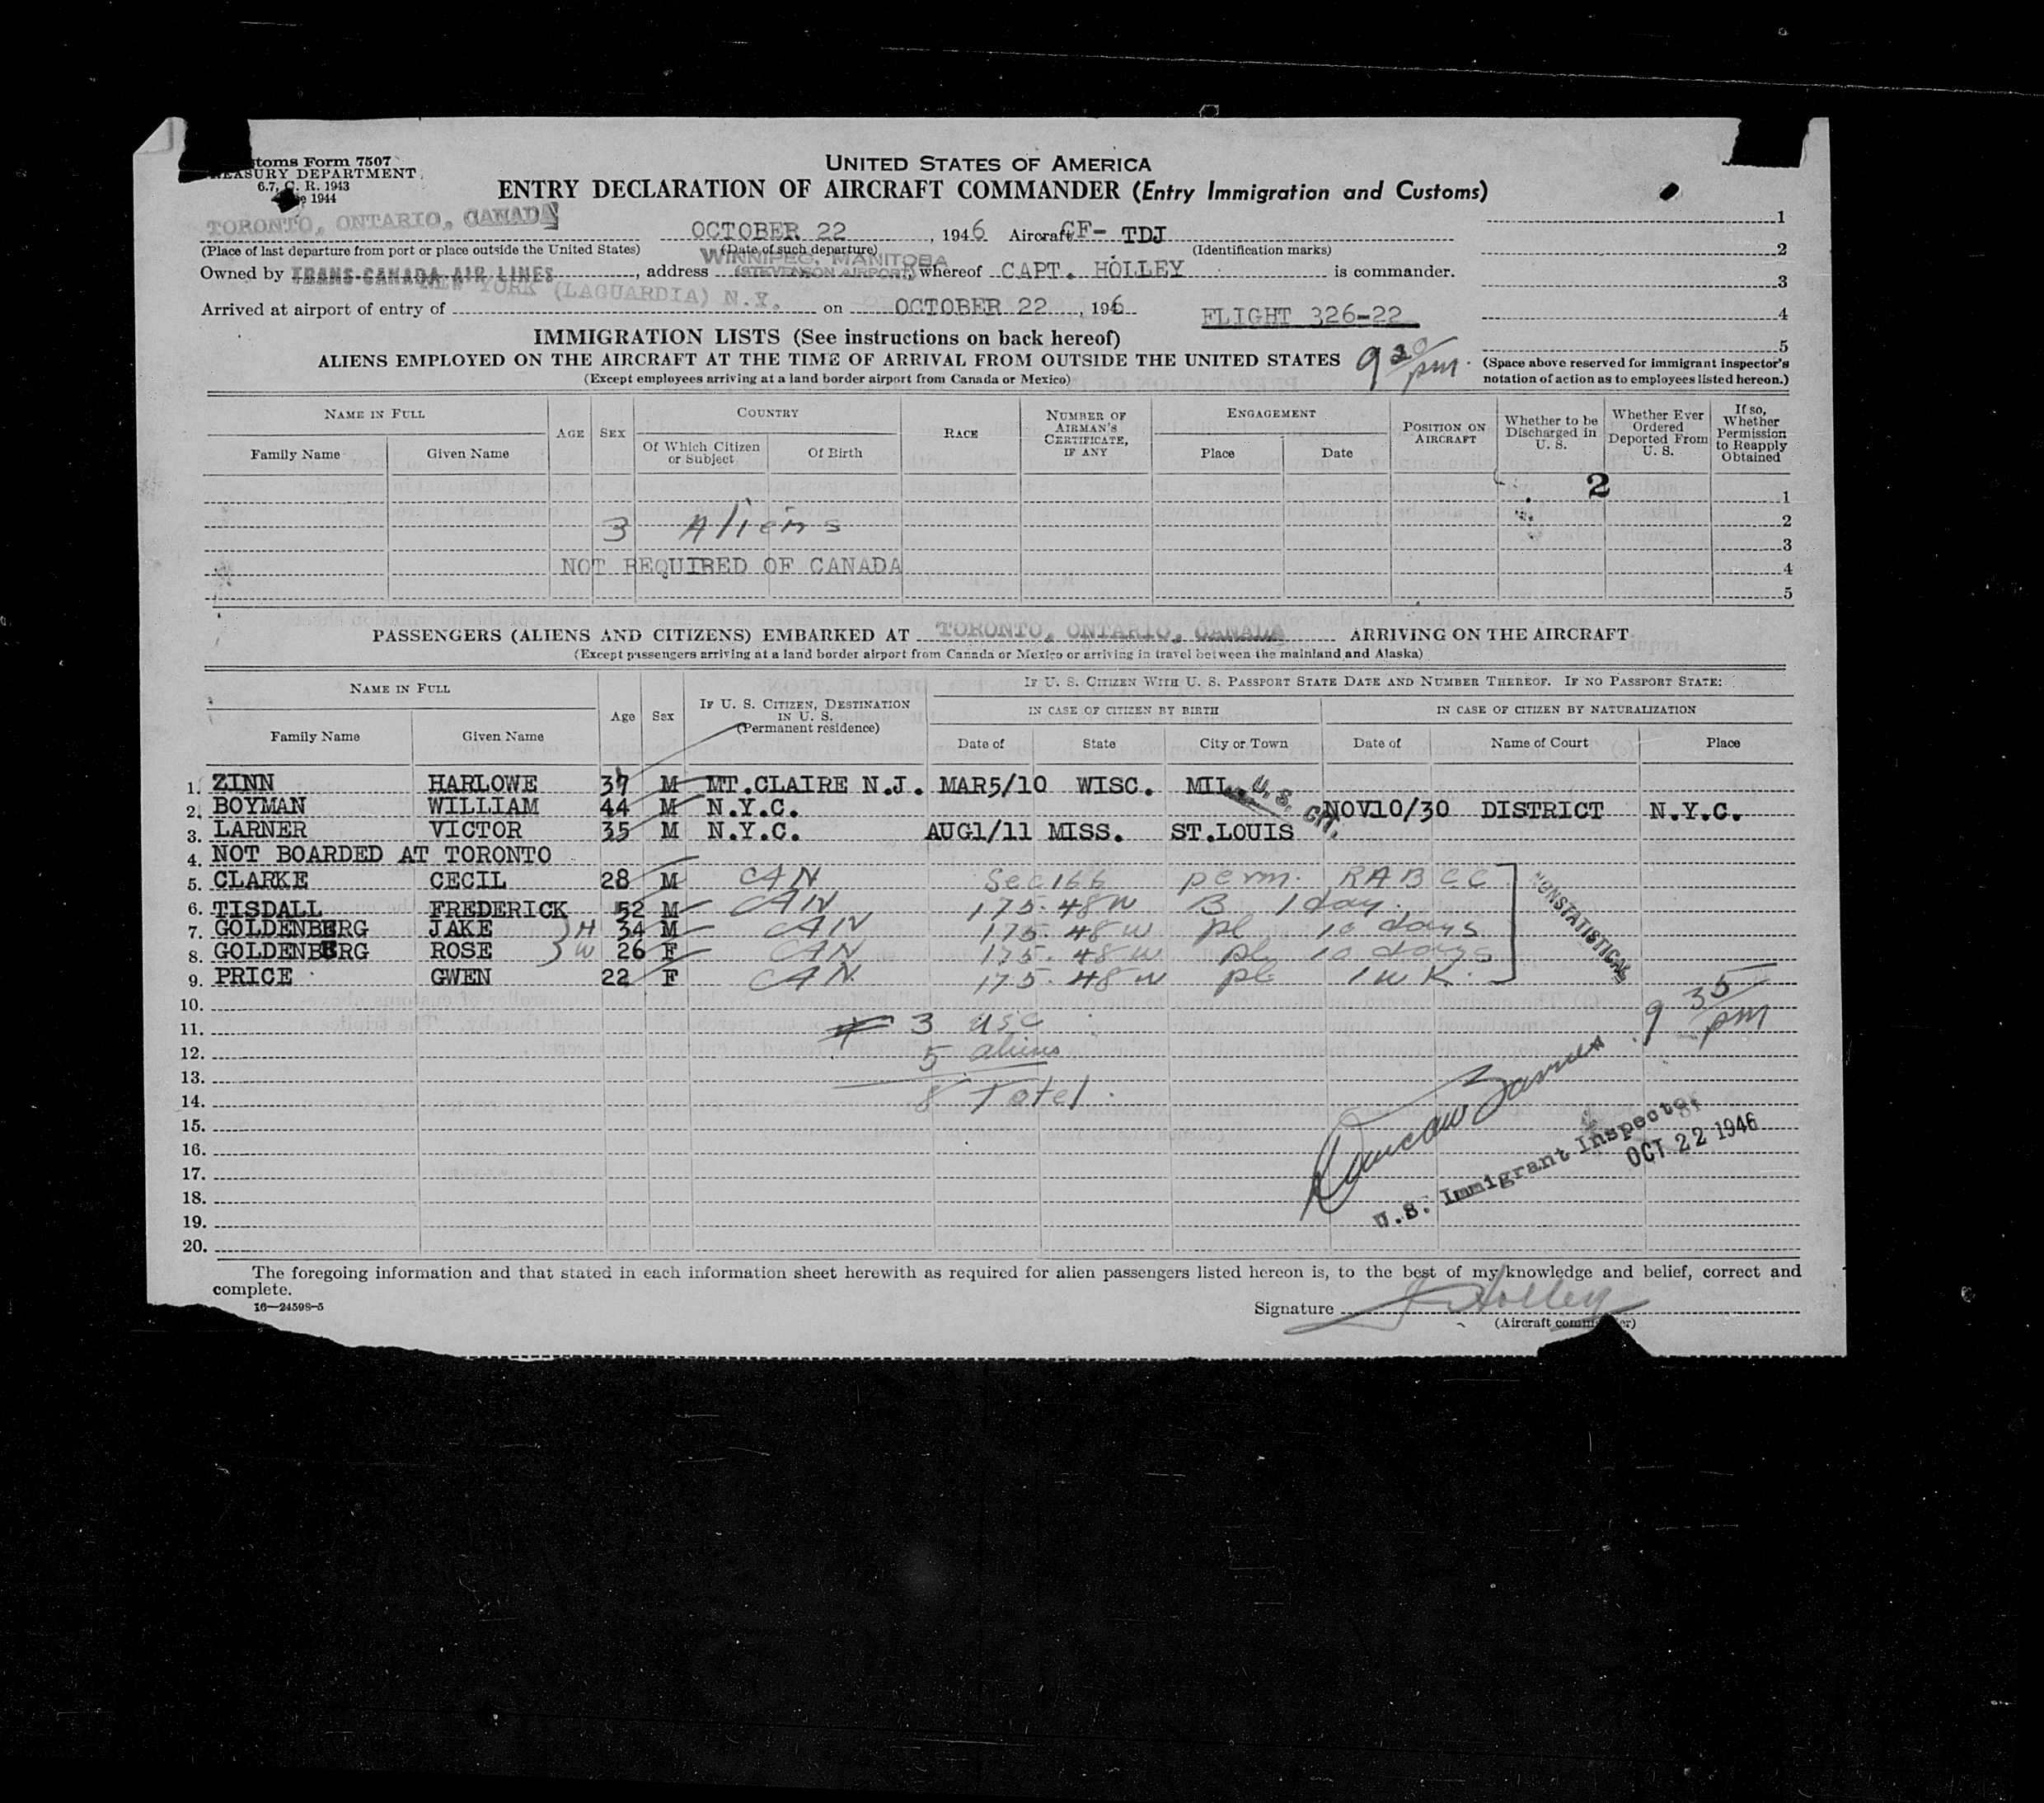 Customs Form 7507
TREASURY DEPARTMENT
6.7, C. R. 1943
1944
UNITED STATES OF AMERICA
ENTRY DECLARATION OF AIRCRAFT COMMANDER (Entry Immigration and Customs)
TORONTO, ONTARIO, CANADA OCTOBER 22, 1946 Aircraft CF- TDJ 1
(Place of last departure from port or place outside the United States) (Date of such departure) (Identification marks) 2
WINNIPEG, MANITOBA
Owned by TRANS-CANADA AIR LINES, address (STEVENSON AIRPORT) whereof CAPT. HOLLEY is commander. 3
NEW YORK (LAGUARDIA) N.Y.
Arrived at airport of entry of on OCTOBER 22, 1946 FLIGHT 326-22 4
IMMIGRATION LISTS (See instructions on back hereof) 5
ALIENS EMPLOYED ON THE AIRCRAFT AT THE TIME OF ARRIVAL FROM OUTSIDE THE UNITED STATES 9 pm. (Space above reserved for immigrant inspector's
(Except employees arriving at a land border airport from Canada or Mexico) notation of action as to employees listed hereon.)
NAME IN FULL AGE SEX COUNTRY RACE NUMBER OF AIRMAN'S CERTIFICATE, IF ANY ENGAGEMENT POSITION ON AIRCRAFT Whether to be Discharged in U. S. Whether Ever Ordered Deported From U. S. If so, Whether Permission to Reapply Obtained
Family Name Given Name Of Which Citizen or Subject Of Birth Place Date
2 1
3 Aliens 2
3
NOT REQUIRED OF CANADA 4
5
PASSENGERS (ALIENS AND CITIZENS) EMBARKED AT TORONTO, ONTARIO, CANADA ARRIVING ON THE AIRCRAFT
(Except passengers arriving at a land border airport from Canada or Mexico or arriving in travel between the mainland and Alaska)
NAME IN FULL Age Sex IF U. S. CITIZEN, DESTINATION IN U. S. (Permanent residence) IF U. S. CITIZEN WITH U. S. PASSPORT STATE DATE AND NUMBER THEREOF. IF NO PASSPORT STATE:
IN CASE OF CITIZEN BY BIRTH IN CASE OF CITIZEN BY NATURALIZATION
Family Name Given Name Date of State City or Town Date of Name of Court Place
1. ZINN HARLOWE 37 M MT.CLAIRE N.J. MAR5/10 WISC. MIL. U. S. CIT.
2. BOYMAN WILLIAM 44 M N.Y.C. NOV10/30 DISTRICT N.Y.C.
3. LARNER VICTOR 35 M N.Y.C. AUG1/11 MISS. ST.LOUIS
4. NOT BOARDED AT TORONTO
5. CLARKE CECIL 28 M CAN Sec 166 perm. RABCC
6. TISDALL FREDERICK 52 M CAN 175.48W B 1 day.
7. GOLDENBERG JAKE H 34 M CAN 175.48W pl 10 days
8. GOLDENBERG ROSE W 26 F CAN 175.48W pl 10 days
9. PRICE GWEN 22 F CAN 175.48W pl 1 WK.
NONSTATISTICAL
10.
11. 3 USC 9 35 pm
12. 5 aliens
13.
14. 8 Total
15.
16.
17.
18.
19.
20.
U.S. Immigrant Inspector
OCT 22 1946
The foregoing information and that stated in each information sheet herewith as required for alien passengers listed hereon is, to the best of my knowledge and belief, correct and
complete.
16—24598-5
Signature Holley
(Aircraft commander)